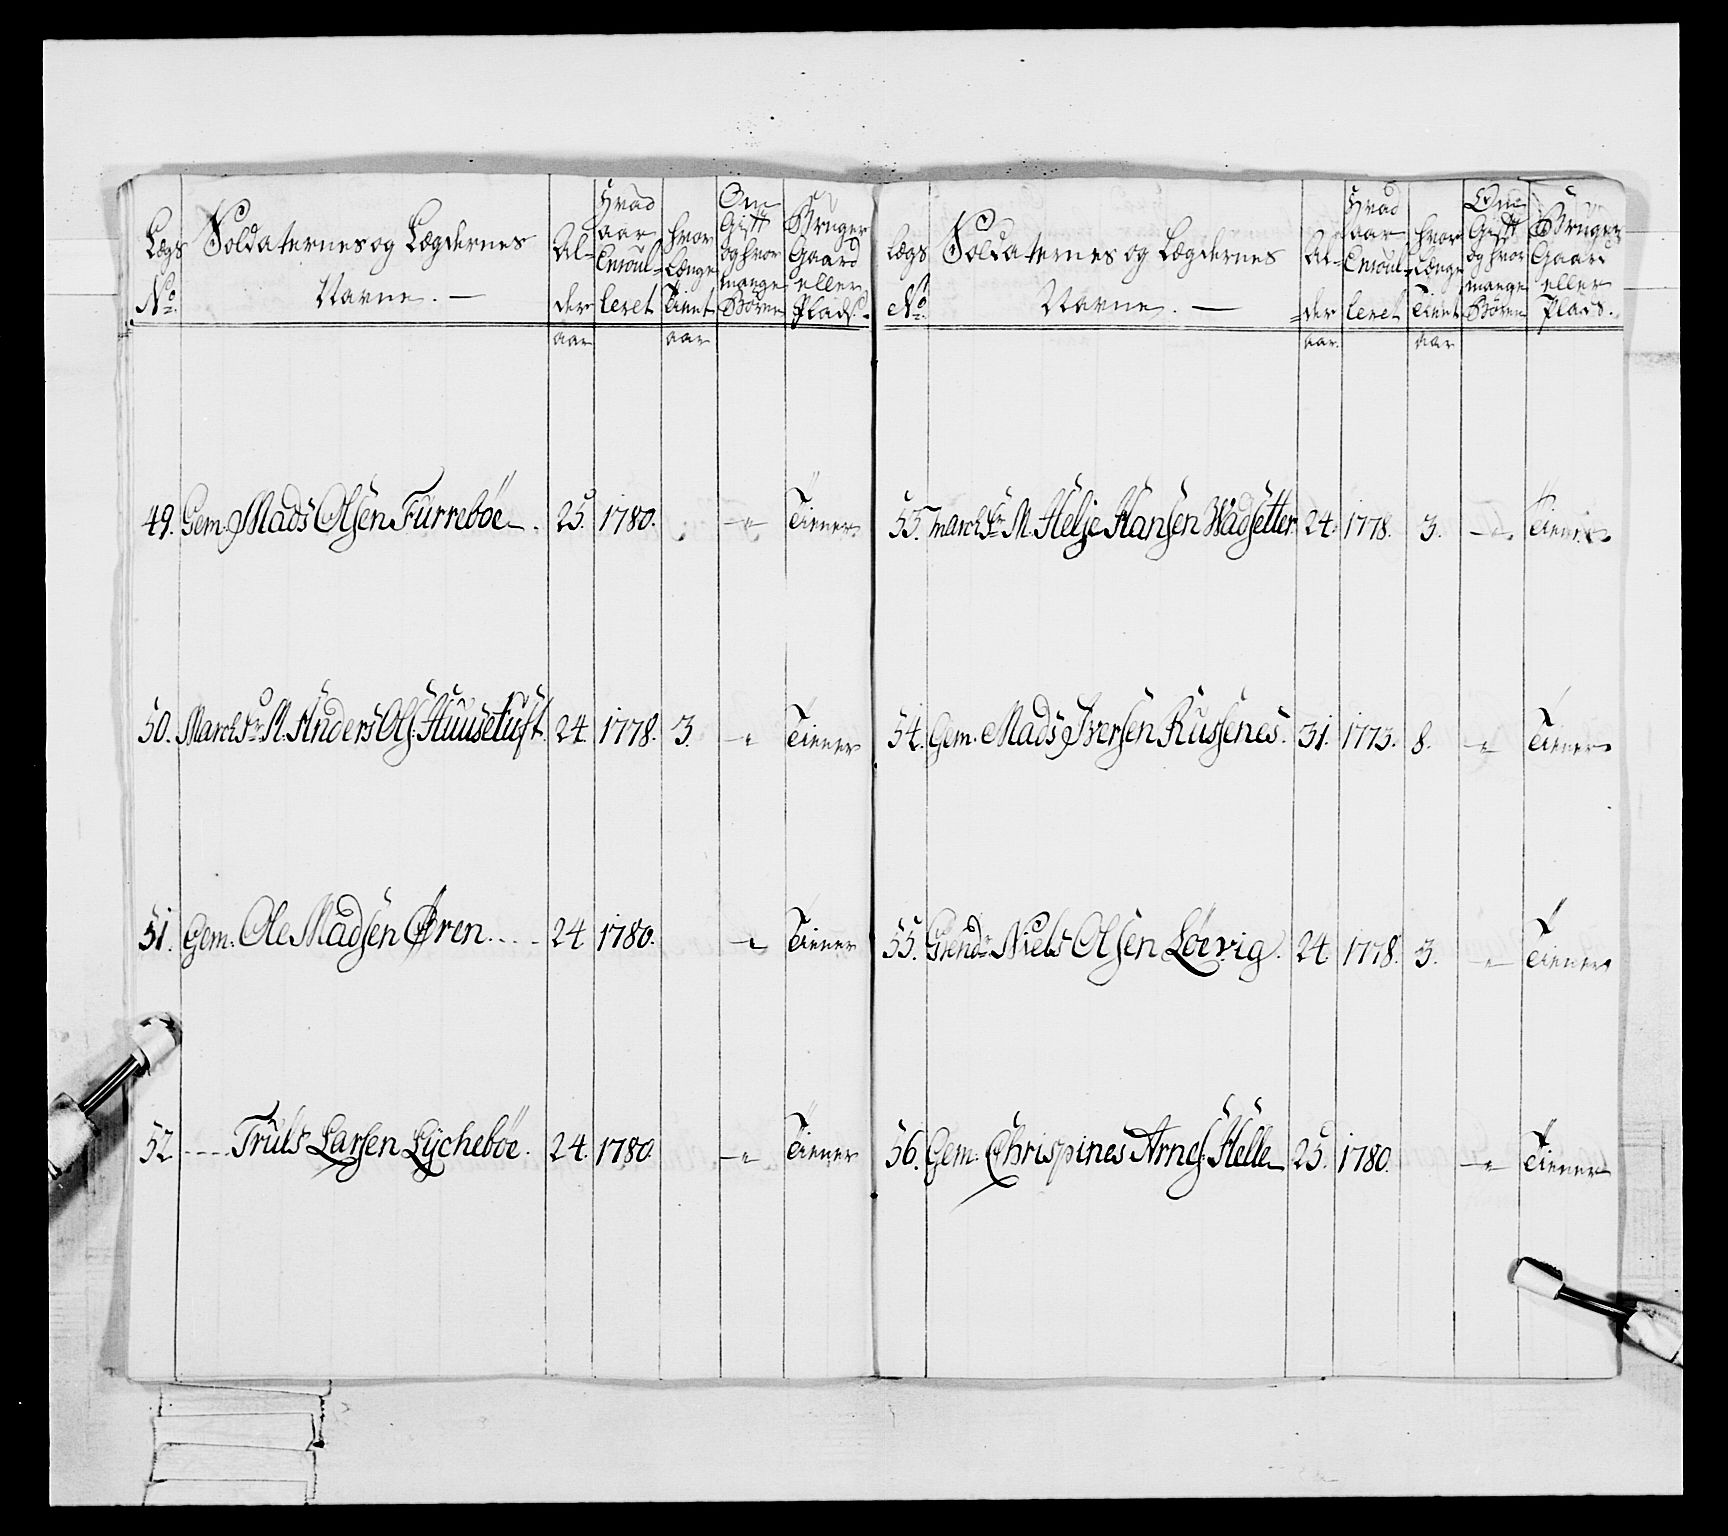 Lægs No. Soldaternes og Lægdernes Navne. — Al- der aar Hvad aar Enroul- leret hvor Længe Tient aar Om Gift og hvor mange Børn Bruger Gaard eller Plads.
49. Gem. Mads Olsen Furrebøe 25. 1780. — " Tiener
50. March Sr. M. Anders Ols. Huusetuft. 24. 1778. 3. — " Tiener
51. Gem. Ole Madsen Øren. 24 1780. — " Tiener
52 ---- Truls Larsen Lychebøe. 24. 1780. — " Tiener
Lægs No. Soldaternes og Lægdernes Navne. — Al- der aar. Hvad aar Enroul- leret hvor Længe Tient aar Om Gift og hvor mange Børn Bruger Gaard eller Plads.
53. March Sr. M. Helje Hansen Wadsetter. 24. 1778. 3. — " Tiener
54. Gem. Mads Iversen Russenes. 31. 1773. 8. — " Tiener
55. Niels Olsen Løevig. 24. 1778. 3. — " Tiener
56. Gem. Chrispines Arnes. Helle 25. 1780. — " Tiener